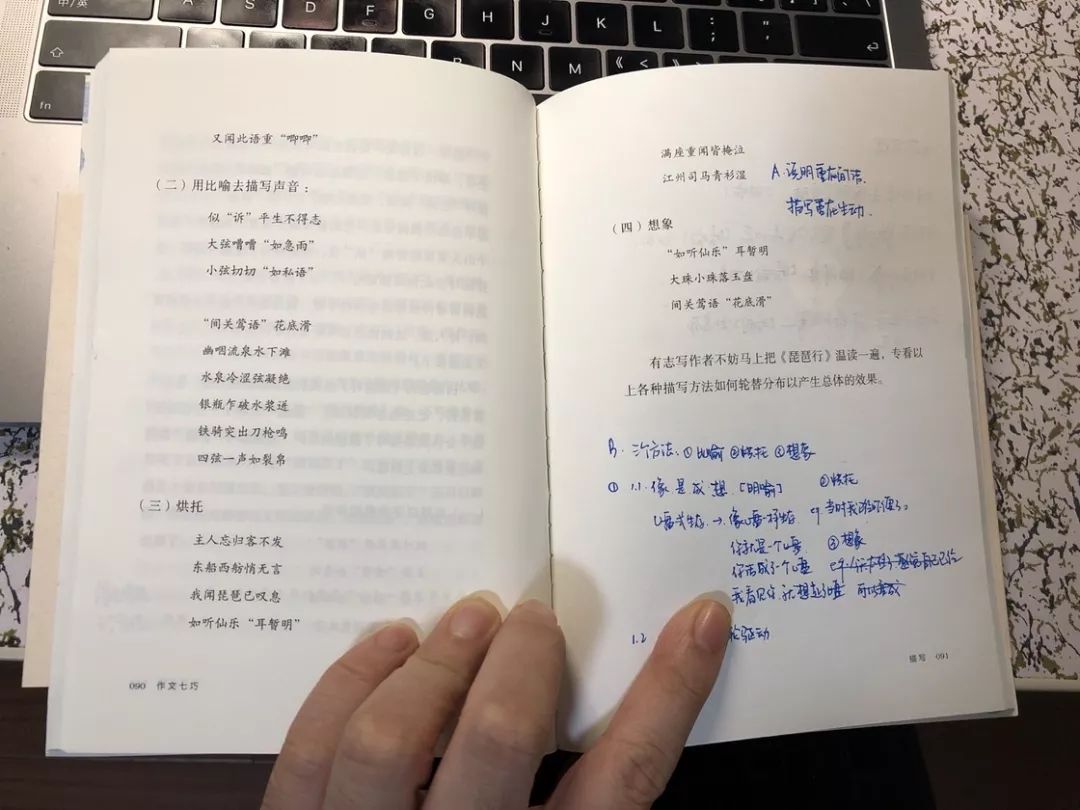 中/英
A
S
D
F
G
H
J
K
L
N
M
fn
又闻此语重“唧唧”
（二）用比喻去描写声音：
似“诉”平生不得志
大弦嘈嘈“如急雨”
小弦切切“如私语”
“间关莺语”花底滑
幽咽流泉水下滩
水泉冷涩弦凝绝
银瓶乍破水浆迸
铁骑突出刀枪鸣
四弦一声如裂帛
（三）烘托
主人忘归客不发
东船西舫悄无言
我闻琵琶已叹息
如听仙乐“耳暂明”
090 作文七巧
满座重闻皆掩泣
江州司马青衫湿
A. 说明重在简洁.
描写重在生动.
（四）想象
“如听仙乐”耳暂明
大珠小珠落玉盘
间关莺语“花底滑”
有志写作者不妨马上把《琵琶行》温读一遍，专看以
上各种描写方法如何轮替分布以产生总体的效果。
B. 三个方法. ①比喻 ②烘托 ③想象
① 1.1. 像 是 成 想. [明喻]
②烘托
③想象
1.2 驱动
描写 091